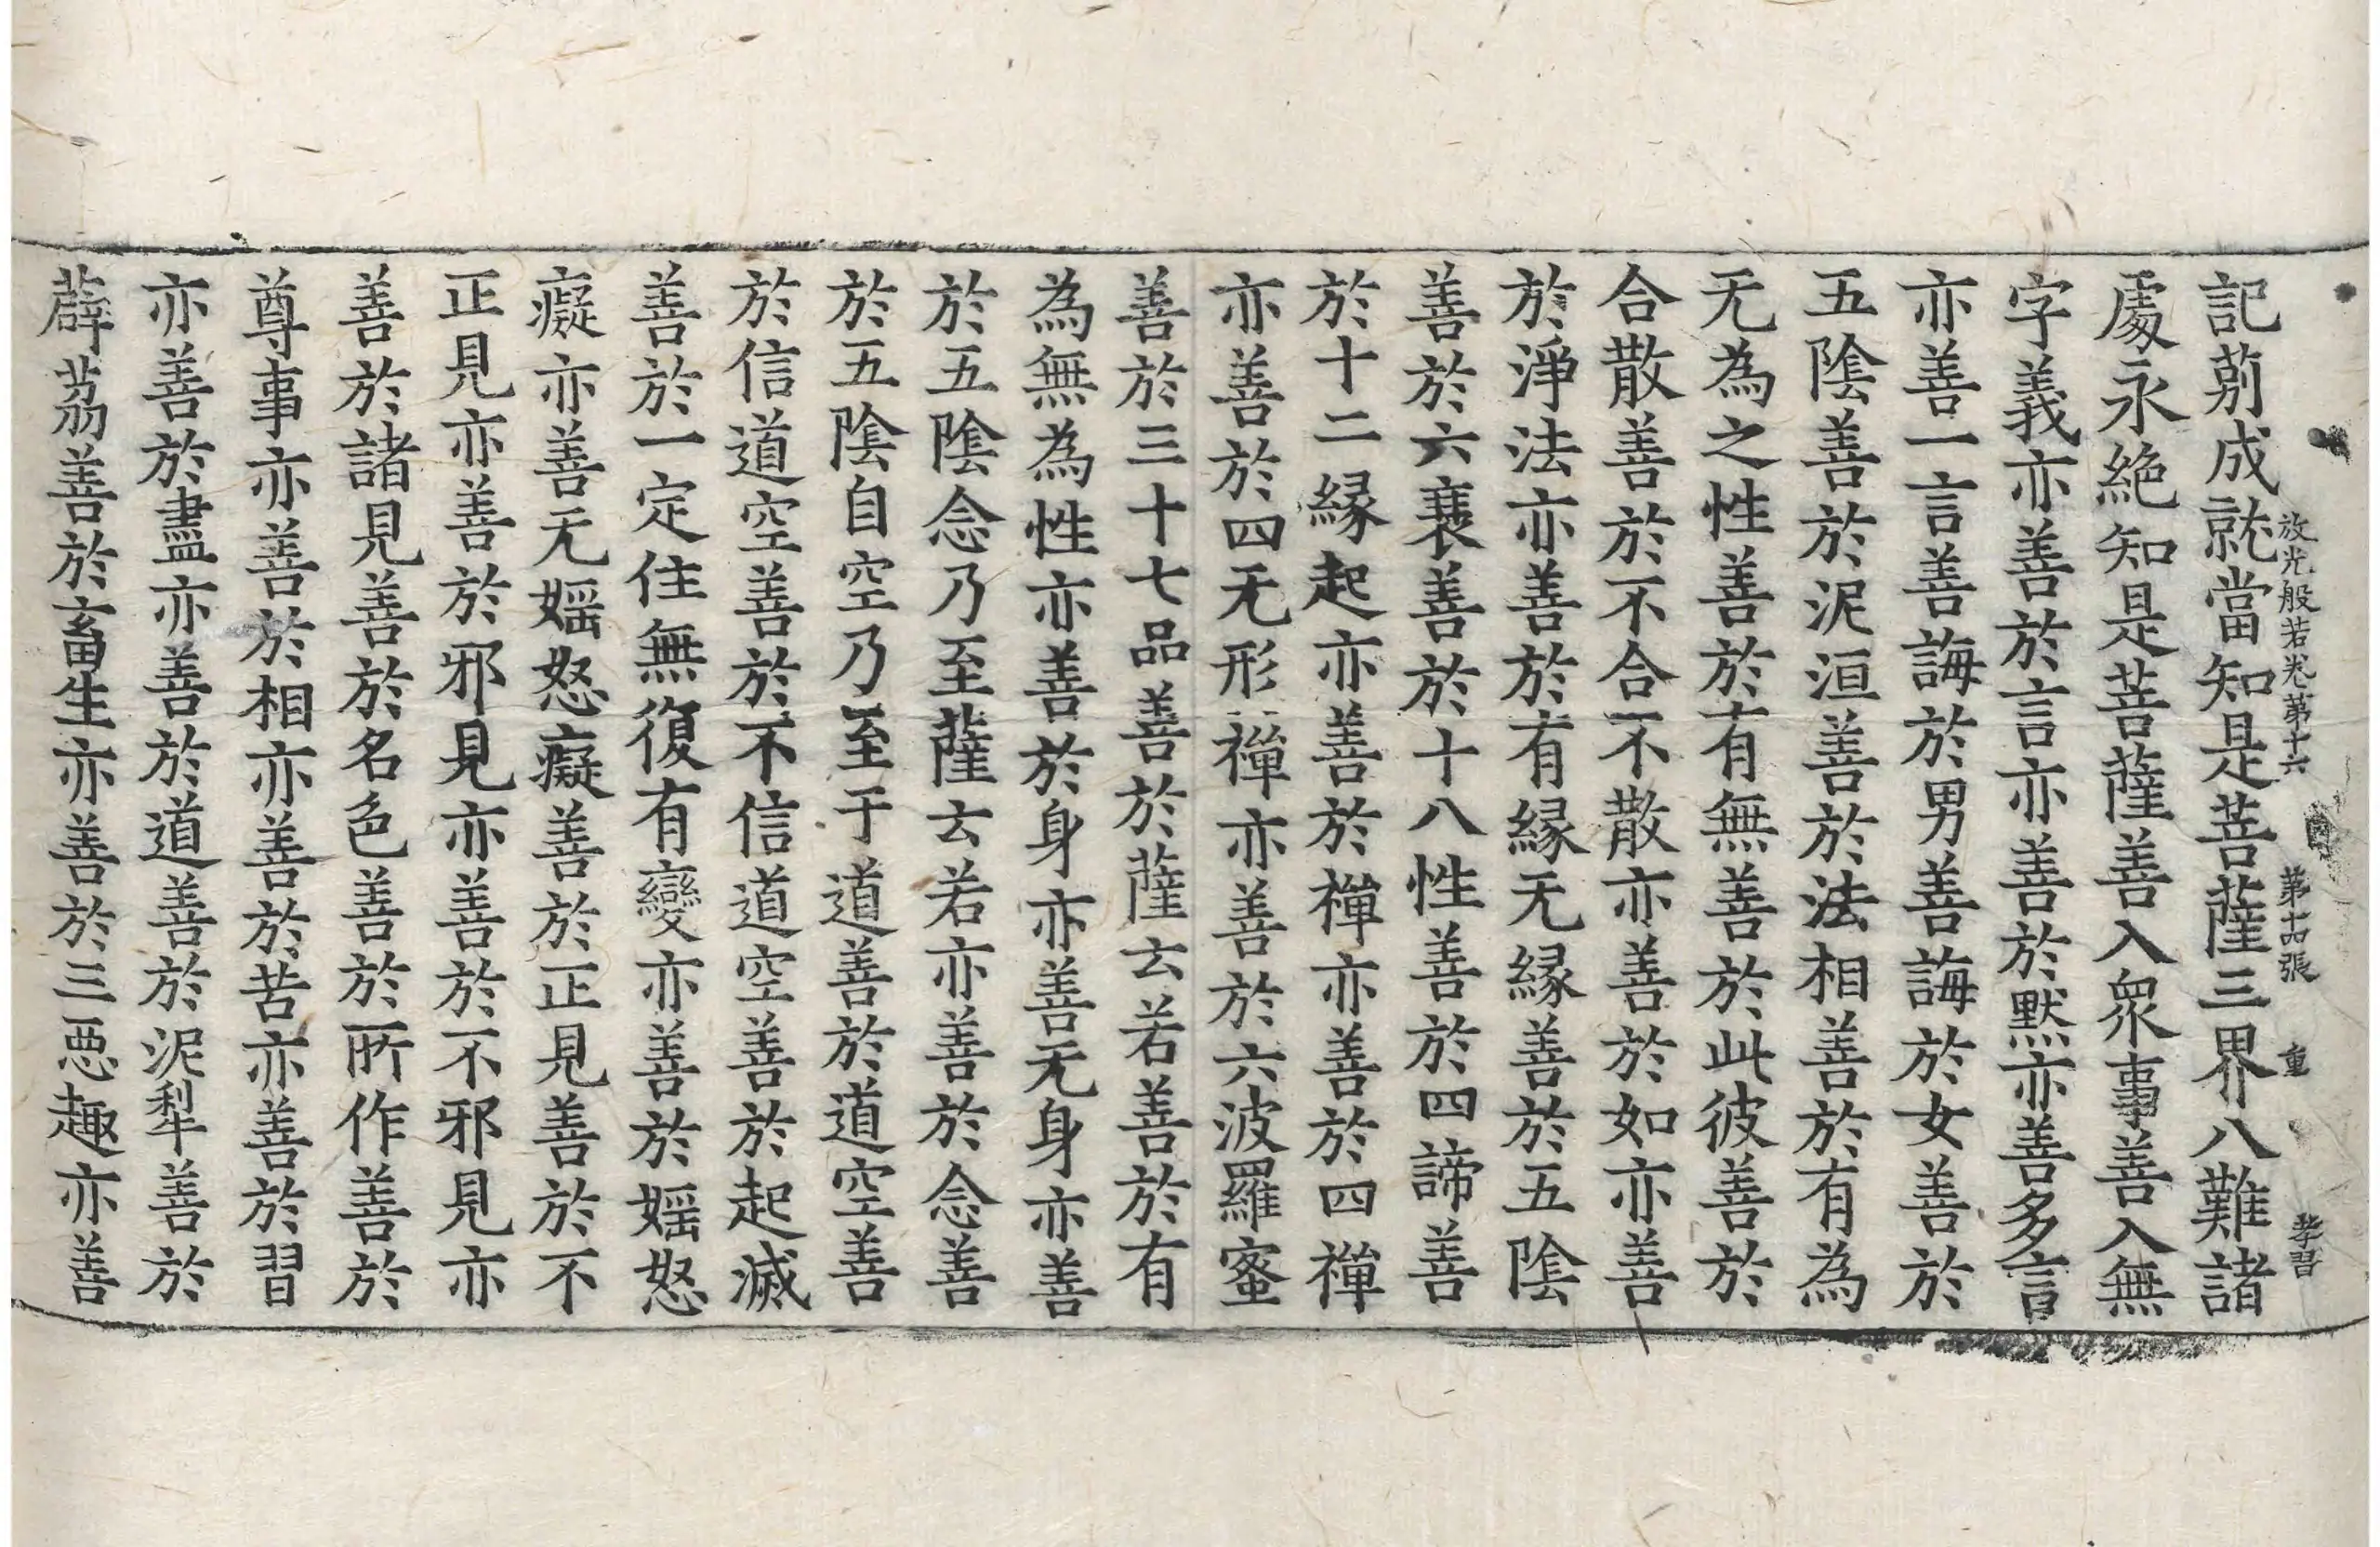 放光般若卷第十六 第十四張 重 孝習
記莂成就當知是菩薩三界八難諸
處永絶知是菩薩善入衆事善入無
字義亦善於言亦善於默亦善多言
亦善一言善誨於男善誨於女善於
五陰善於泥洹善於法相善於有為
无為之性善於有無善於此彼善於
合散善於不合不散亦善於如亦善
於淨法亦善於有縁无縁善於五陰
善於六衰善於十八性善於四諦善
於十二縁起亦善於禪亦善於四禪
亦善於四无形禪亦善於六波羅蜜
善於三十七品善於薩云若善於有
為無為性亦善於身亦善无身亦善
於五陰念乃至薩云若亦善於念善
於五陰自空乃至于道善於道空善
於信道空善於不信道空善於起滅
善於一定住無復有變亦善於婬怒
癡亦善无婬怒癡善於正見善於不
正見亦善於邪見亦善於不邪見亦
善於諸見善於名色善於所作善於
尊事亦善於相亦善於苦亦善於習
亦善於盡亦善於道善於泥犁善於
薜茘善於畜生亦善於三惡趣亦善